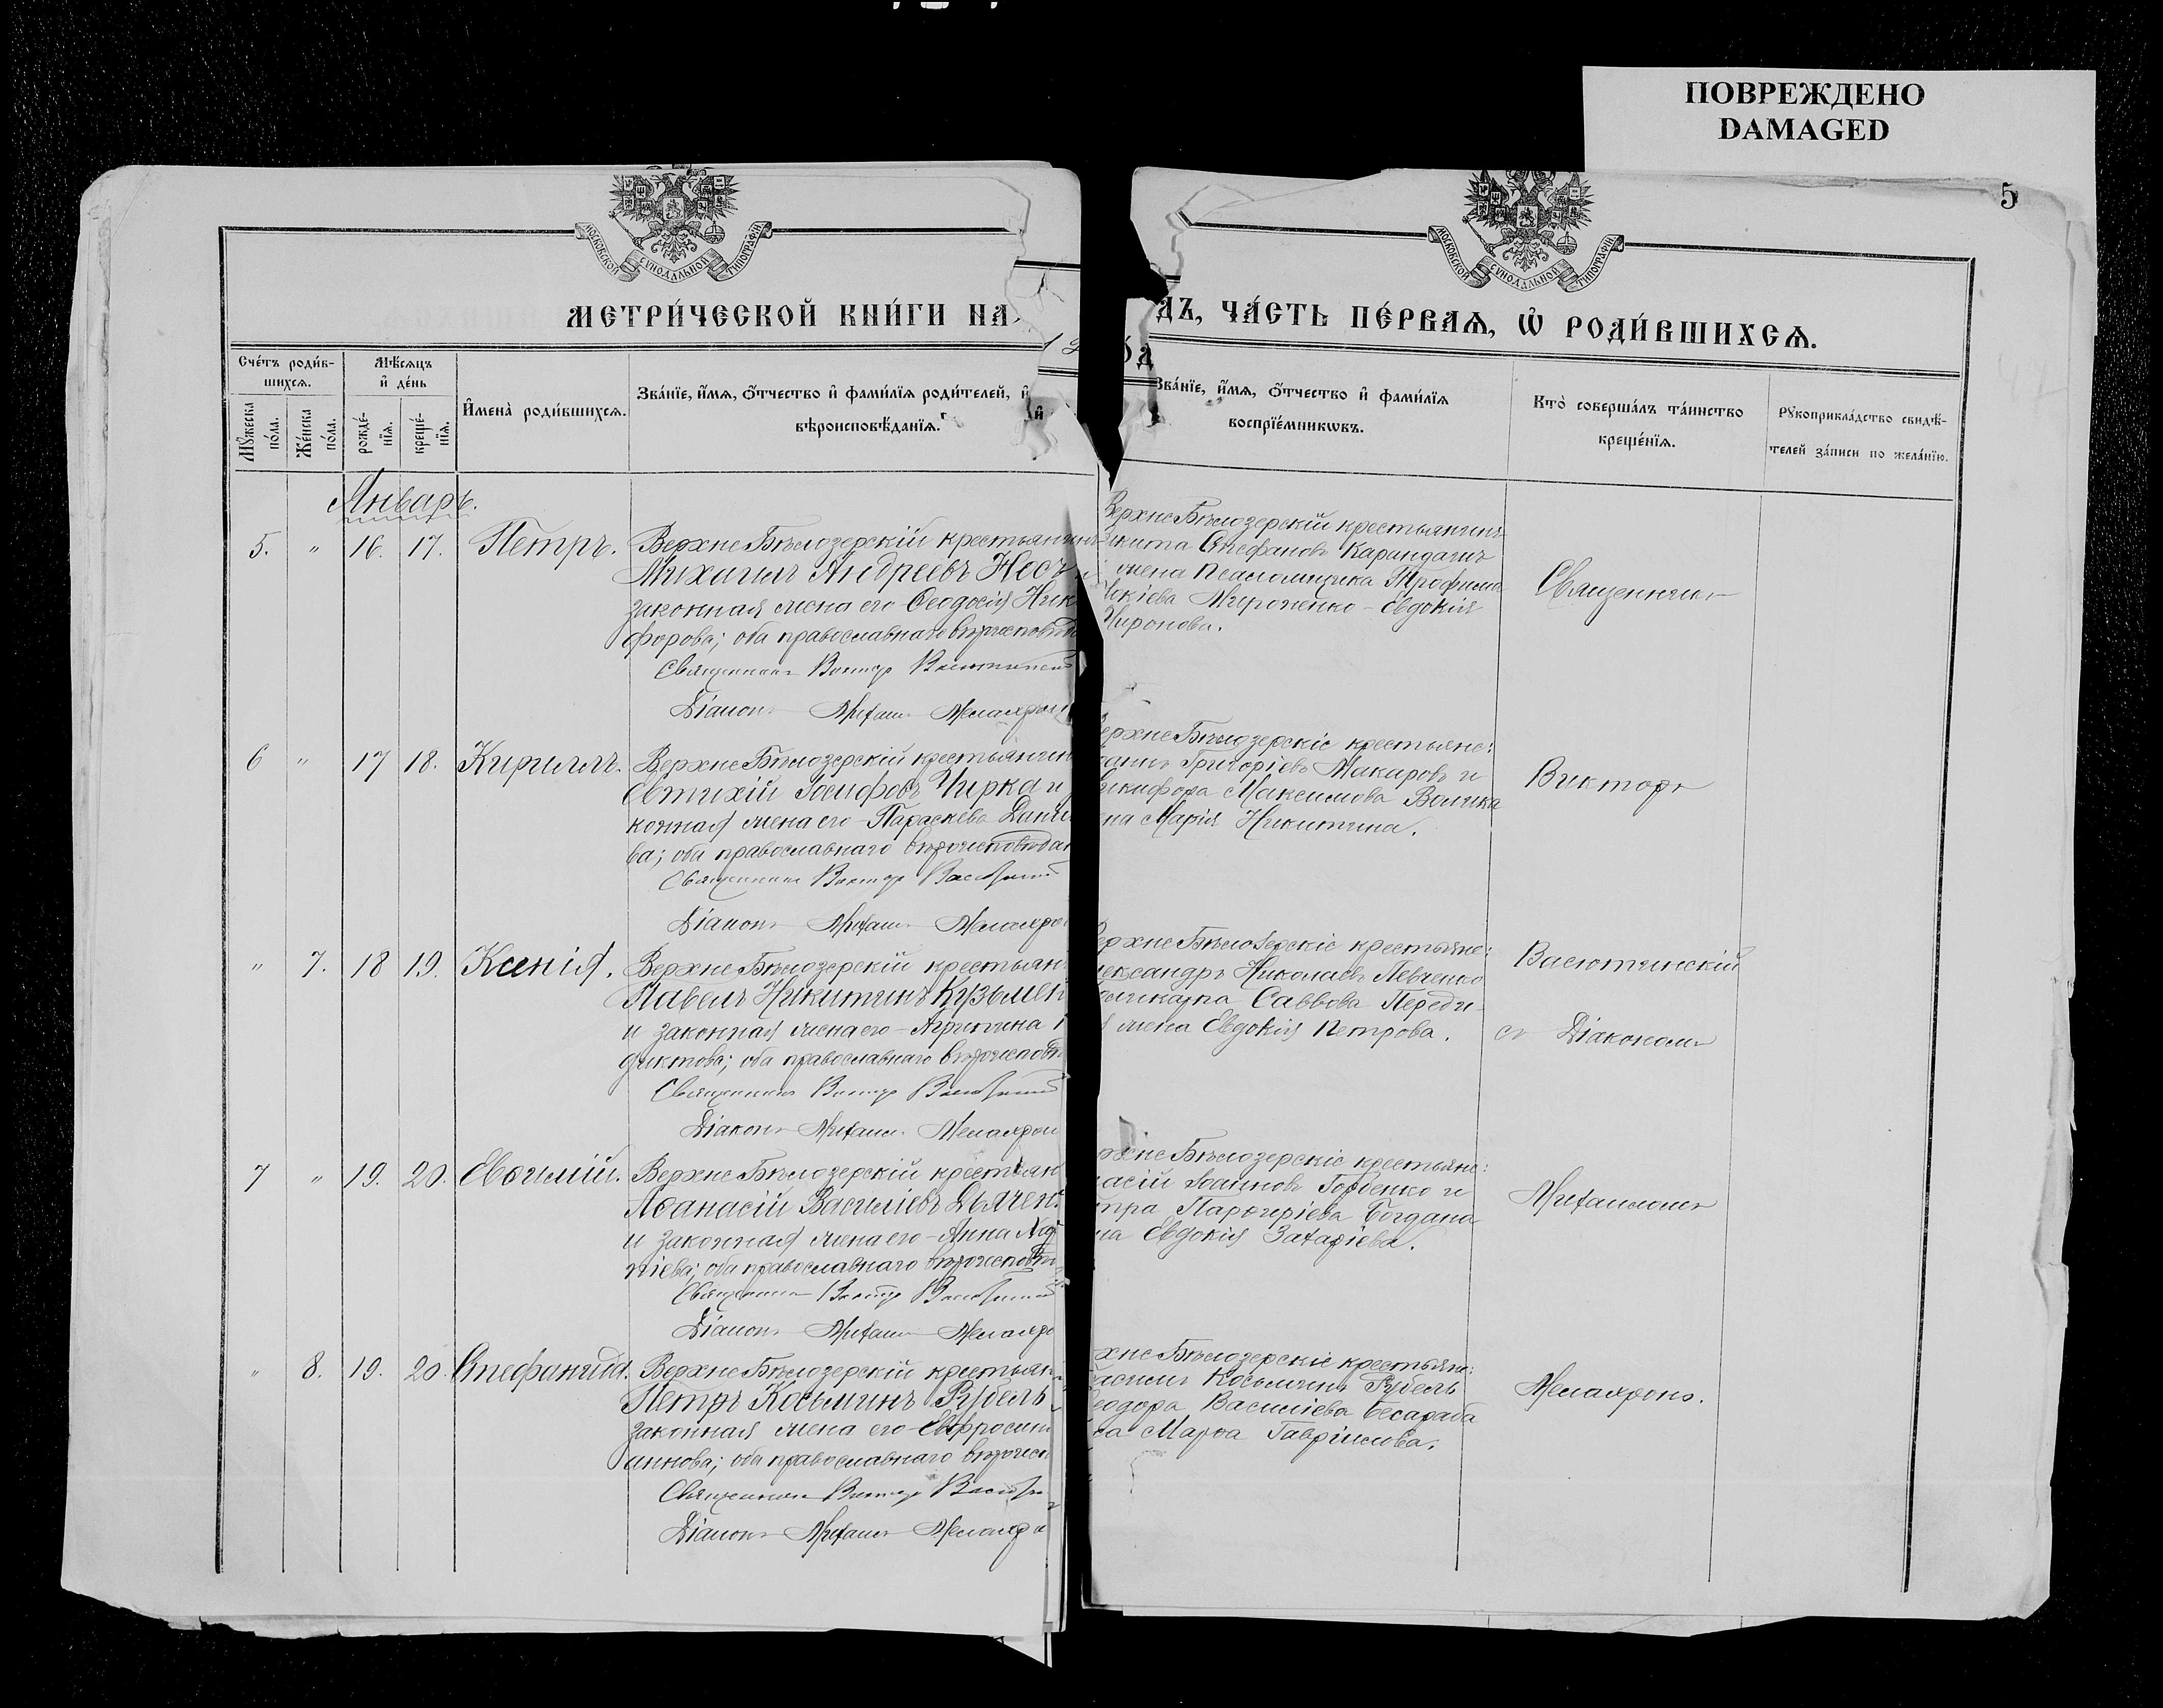 ПОВРЕЖДЕНО
DAMAGED
5
МОСКОВСКОЙ СѴНОДАЛЬНОЙ ТИПОГРАФІИ
МОСКОВСКОЙ СѴНОДАЛЬНОЙ ТИПОГРАФІИ
МЕТРИ́ЧЕСКОЙ КНИ́ГИ НА
ДЪ, ЧА́СТЬ ПЕ́РВАѦ, Ѡ҆ РОДИ́ВШИХСѦ.
Сче́тъ роди́в-
шихсѧ.
Мꙋ́жеска
по́ла.
Же́нска
по́ла.
Мѣ́сѧцъ
и҆ де́нь
рожде́-
нїѧ.
креще́-
нїѧ.
И҆мена̀ роди́вшихсѧ.
Зва́нїе, и҆́мѧ, ѻ҆́тчество и҆ фами́лїѧ роди́телей, и҆
вѣроисповѣ́данїѧ.
Зва́нїе, и҆́мѧ, ѻ҆́тчество и҆ фами́лїѧ
воспрїе́мникѡвъ.
Кто̀ соверша́лъ та́инство
креще́нїѧ.
Рꙋкоприкла́дство свидѣ́-
телей за́писи по жела́нїю.
Январь.
5. " 16. 17. Петръ.
Верхне Бѣлозерскій крестьянинъ
Михаилъ Андреевъ Нес
законная жена его Ѳеодосія Ник
форова; оба православнаго вѣроисповѣда
Священникъ Викторъ Васютинскій
Діаконъ Митрофанъ
Верхне Бѣлозерскій крестьянинъ
икита Стефановъ Карандашъ
жена псаломщика Трофима
Мироненко - Евдокія
Миронова.
Священникъ
6 " 17 18. Кириллъ.
Верхне Бѣлозерскій крестьянин
Евтихій Іосифовъ Чирка и
конная жена его - Параскева Данил
ва; оба православнаго вѣроисповѣдан
Священникъ Викторъ Васютинскій
Діаконъ
ерхне Бѣлозерскіе крестьяне:
Григоріевъ Макаровъ и
икифора Максимова Волика
на Марія Никитина.
Викторъ
" 7. 18 19. Ксенія.
Верхне Бѣлозерскій крестьян
Павелъ Никитинъ Кузьмен
и законная жена его - Агрипина
диктова; оба православнаго вѣроисповѣ
Священникъ Викторъ Васютинскій
Діаконъ
ерхне Бѣлозерскіе крестьяне:
лександръ Николаевъ Левченко
оликарпа Саввова Переди-
жена Евдокія Петрова.
Васютинскій
съ Діакономъ
7 " 19. 20. Евѳимій.
Верхне Бѣлозерскій крестьян
Аѳанасій Василіевъ Дьячен
и законная жена его - Анна
ніева; оба православнаго вѣроисповѣ
Священникъ Викторъ Васютинскій
Діаконъ
рхне Бѣлозерскіе крестьяне:
асій Іоанновъ Горбенко и
етра Порфиріева Богдана
на Евдокія Захаріева.
" 8. 19. 20. Стефанида.
Верхне Бѣлозерскій крестьян
Петръ Косьминъ Рубель
законная жена его Евфросин
аннова; оба православнаго вѣроисп
Священникъ Викторъ
Діаконъ
рхне Бѣлозерскіе крестьяне:
асилій Косьминъ Рубель
еодора Василіева Бесараба
на Марѳа Гавріилова.